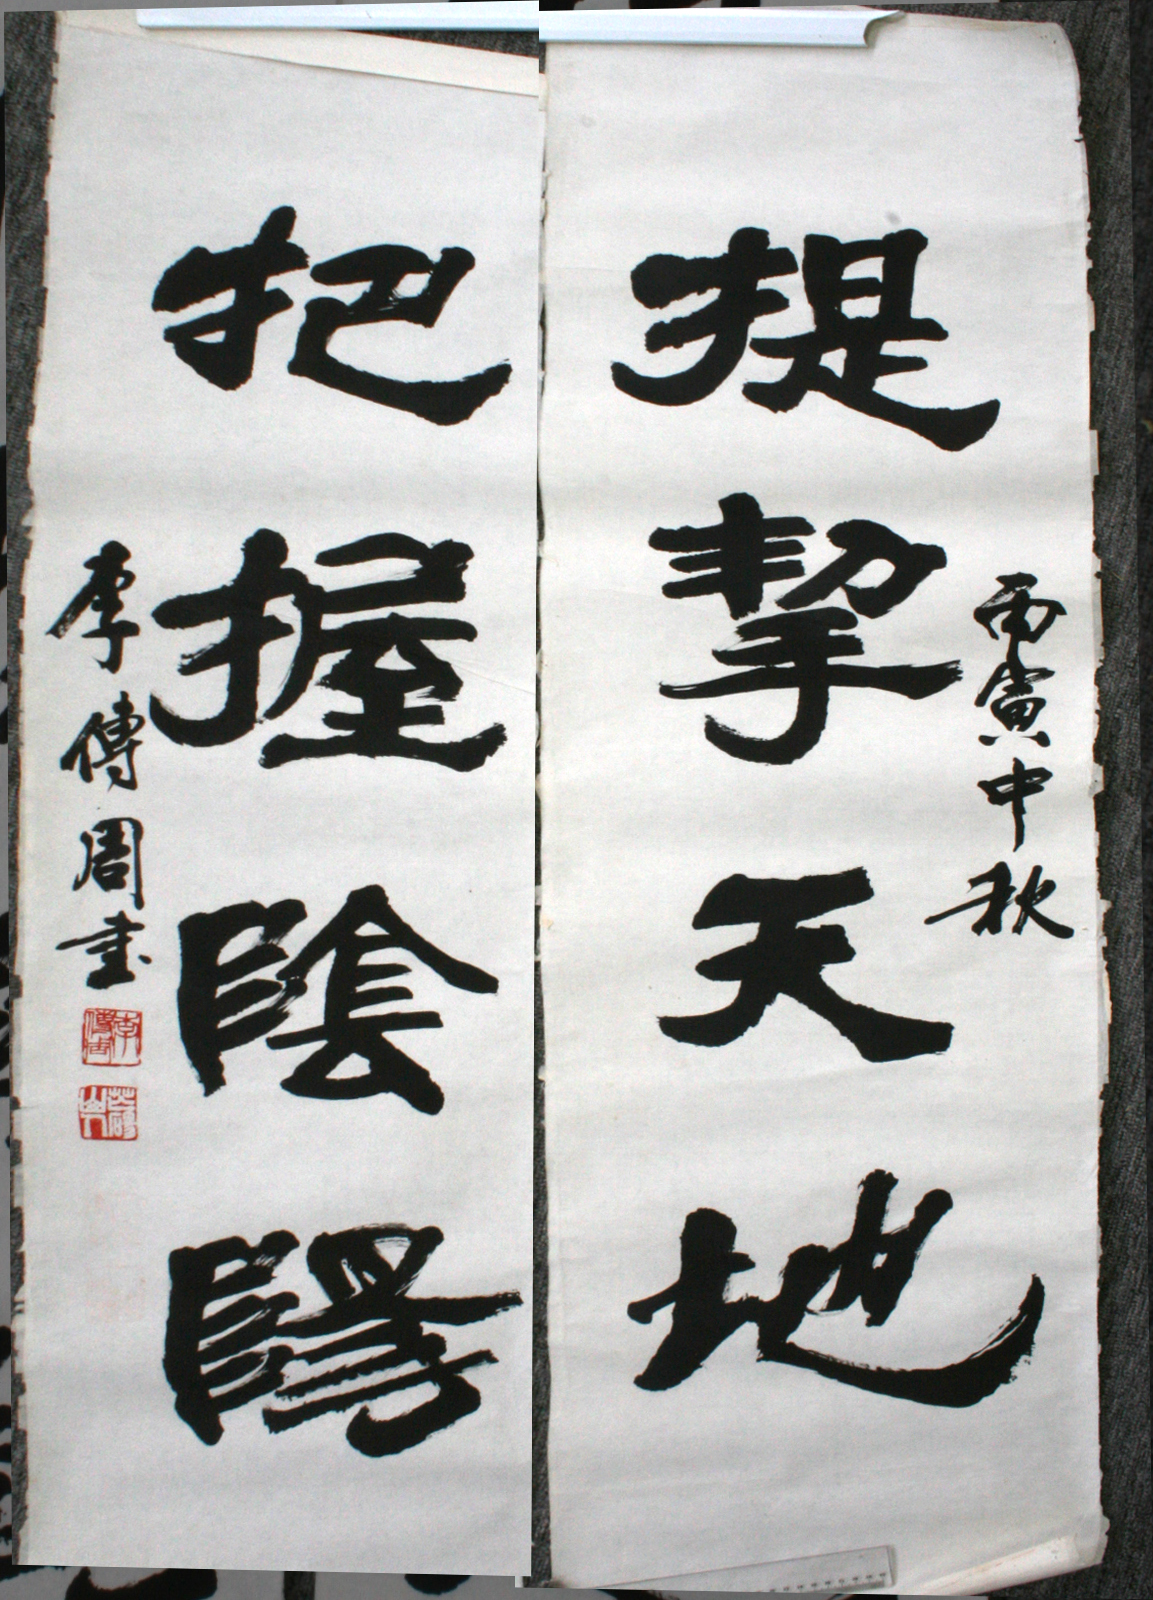 丙寅中秋
提挈天地
把握陰陽
李傳周書
李傳周